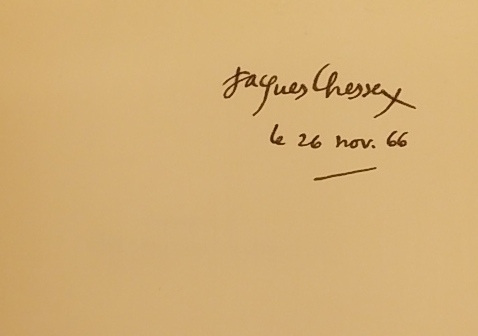 Jacques Chessex
le 26 nov. 66